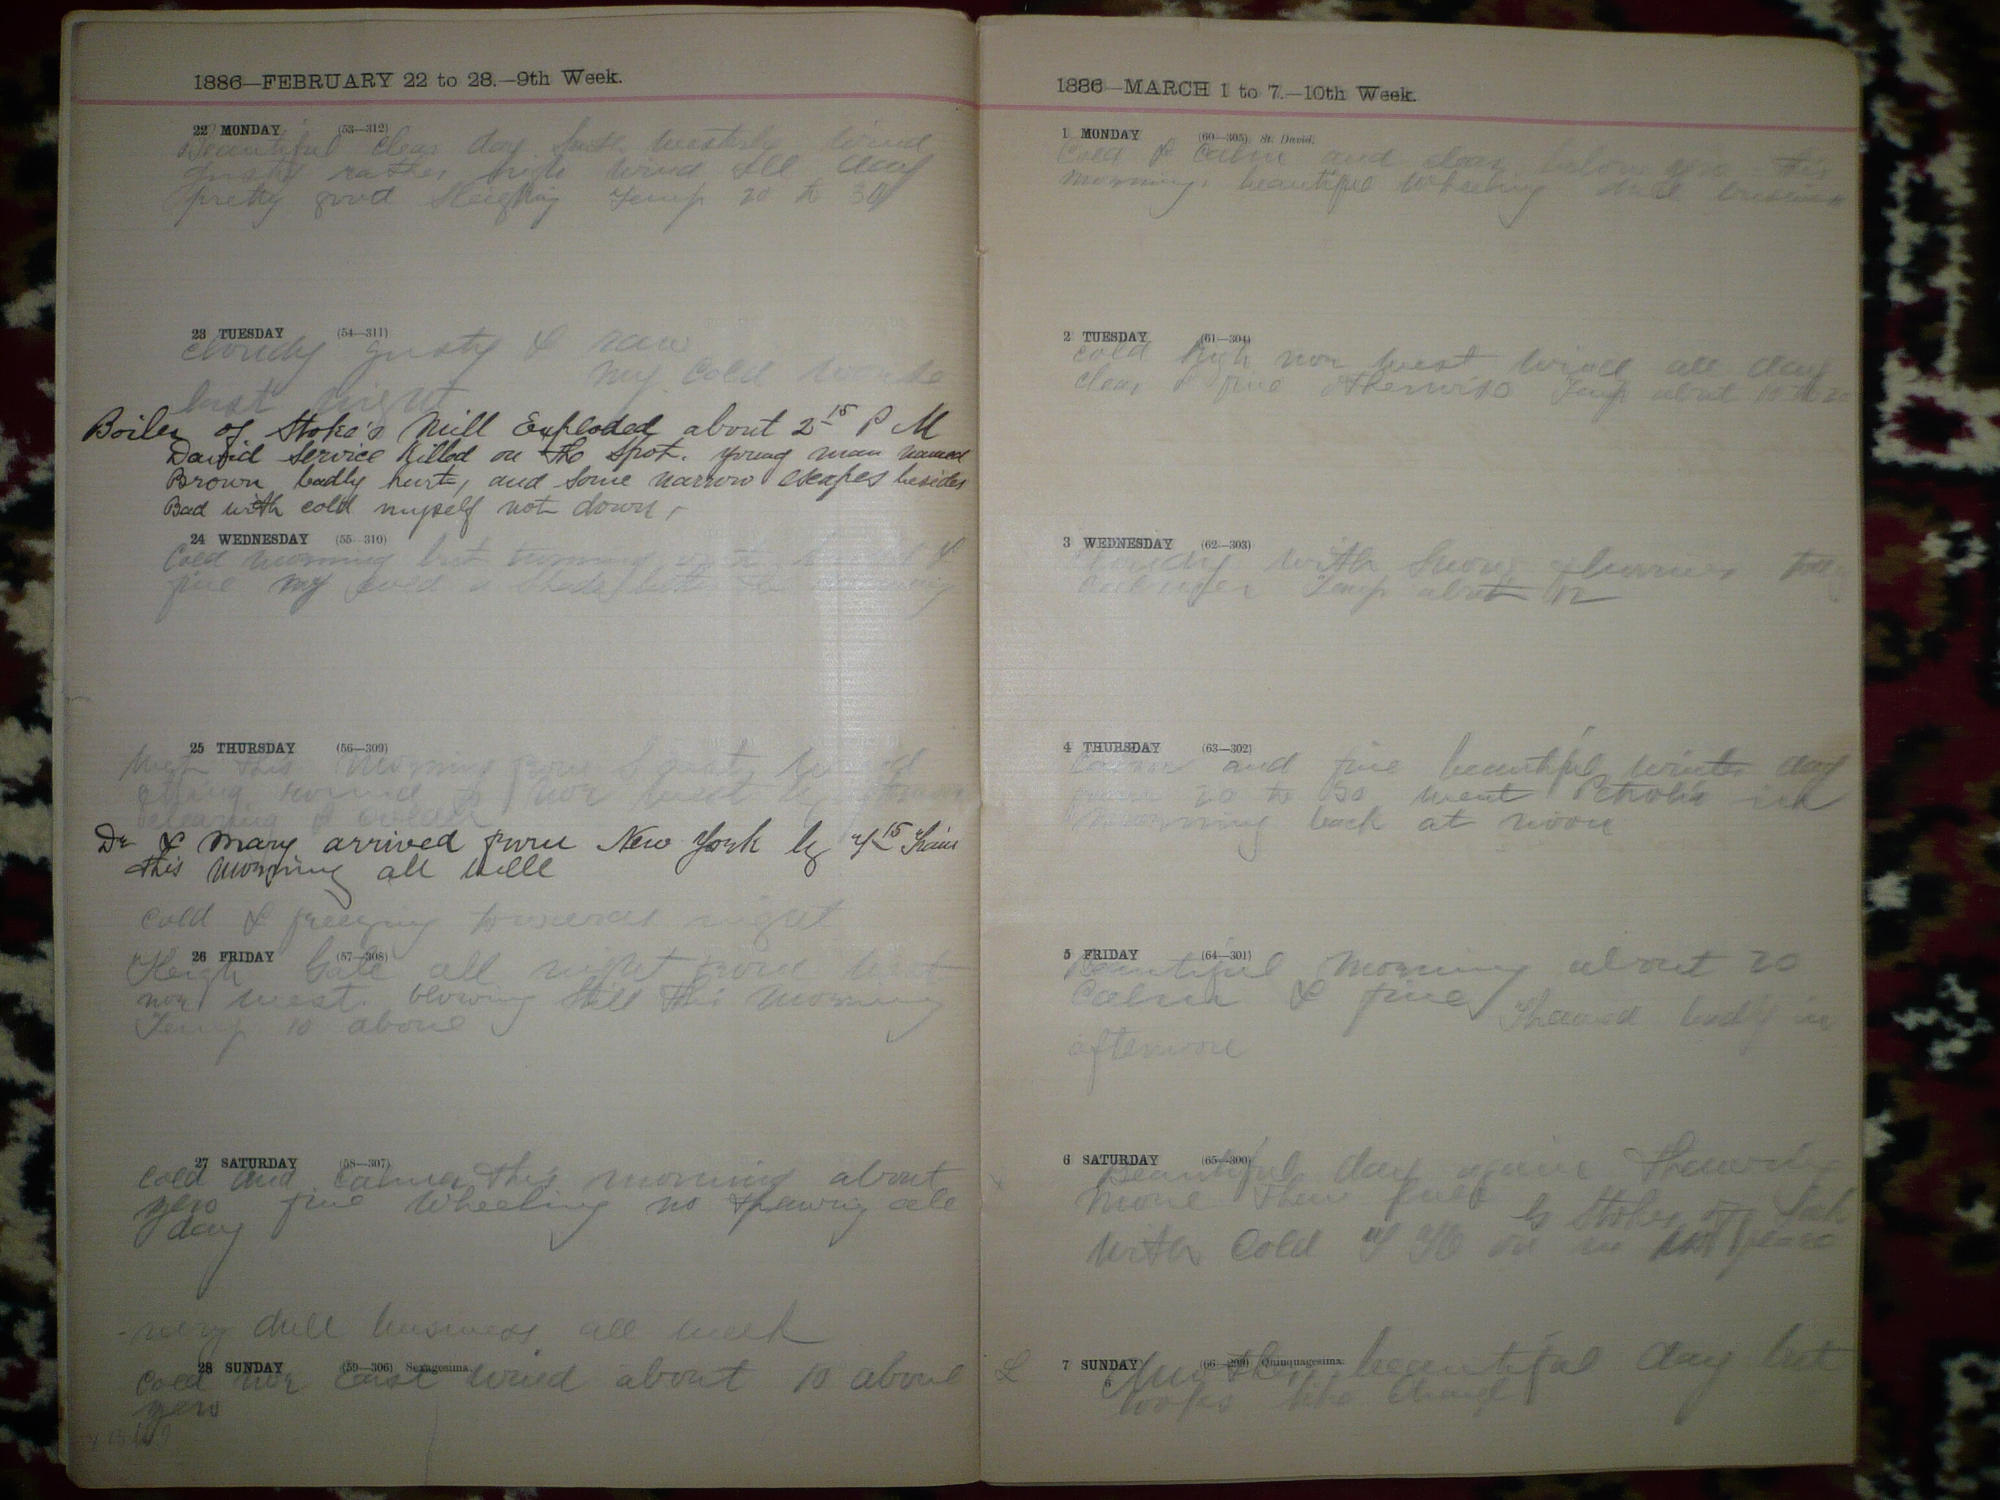 1886—FEBRUARY 22 to 28.—9th Week.
22 MONDAY (53—312)
Beautiful clear day South westerly wind
gusty rather high wind all day
pretty good Sleighing Temp 20 to 30
23 TUESDAY (54—311)
Cloudy gusty & raw
my cold worse
last night
Boiler of Stoke's Mill Exploded about 2 15 P M
David Service Killed on the spot. young man named
Brown badly hurt, and some narrow escapes besides
Bad with cold myself not down,
24 WEDNESDAY (55—310)
Cold morning but turning &
fine my cold a shade
25 THURSDAY (56—309)
this morning from
round to nor west by
clearing & colder
Dr & Mary arrived from New York by 15 Train
this morning all well
Cold & freezing towards night
26 FRIDAY (57—308)
High Gale all night from
nor west. blowing still this morning
Temp 10 above
27 SATURDAY (58—307)
Cold and Calm this morning about
zero fine Wheeling no thawing all
day
very dull business all week
28 SUNDAY (59—306) Sexagesima.
Cold nor East wind about 10 above
zero
1886—MARCH 1 to 7.—10th Week.
1 MONDAY (60—305) St. David.
Cold & Calm and clear below zero this
morning, beautiful Wheeling dull business
2 TUESDAY (61—304)
Cold high nor west wind all day
clear & fine otherwise Temp about 10 to 20
3 WEDNESDAY (62—303)
Cloudy with Snow flurries
Temp about 12
4 THURSDAY (63—302)
Calm and fine beautiful winter day
from 20 to 30 went Petrolia in
morning back at noon
5 FRIDAY (64—301)
Beautiful Morning about 20
Calm & fine Thawed in
afternoon
6 SATURDAY (65—300)
Beautiful day again Thawing
more than
Stokes
with Cold
7 SUNDAY (66—299) Quinquagesima.
Another beautiful day but
looks like change